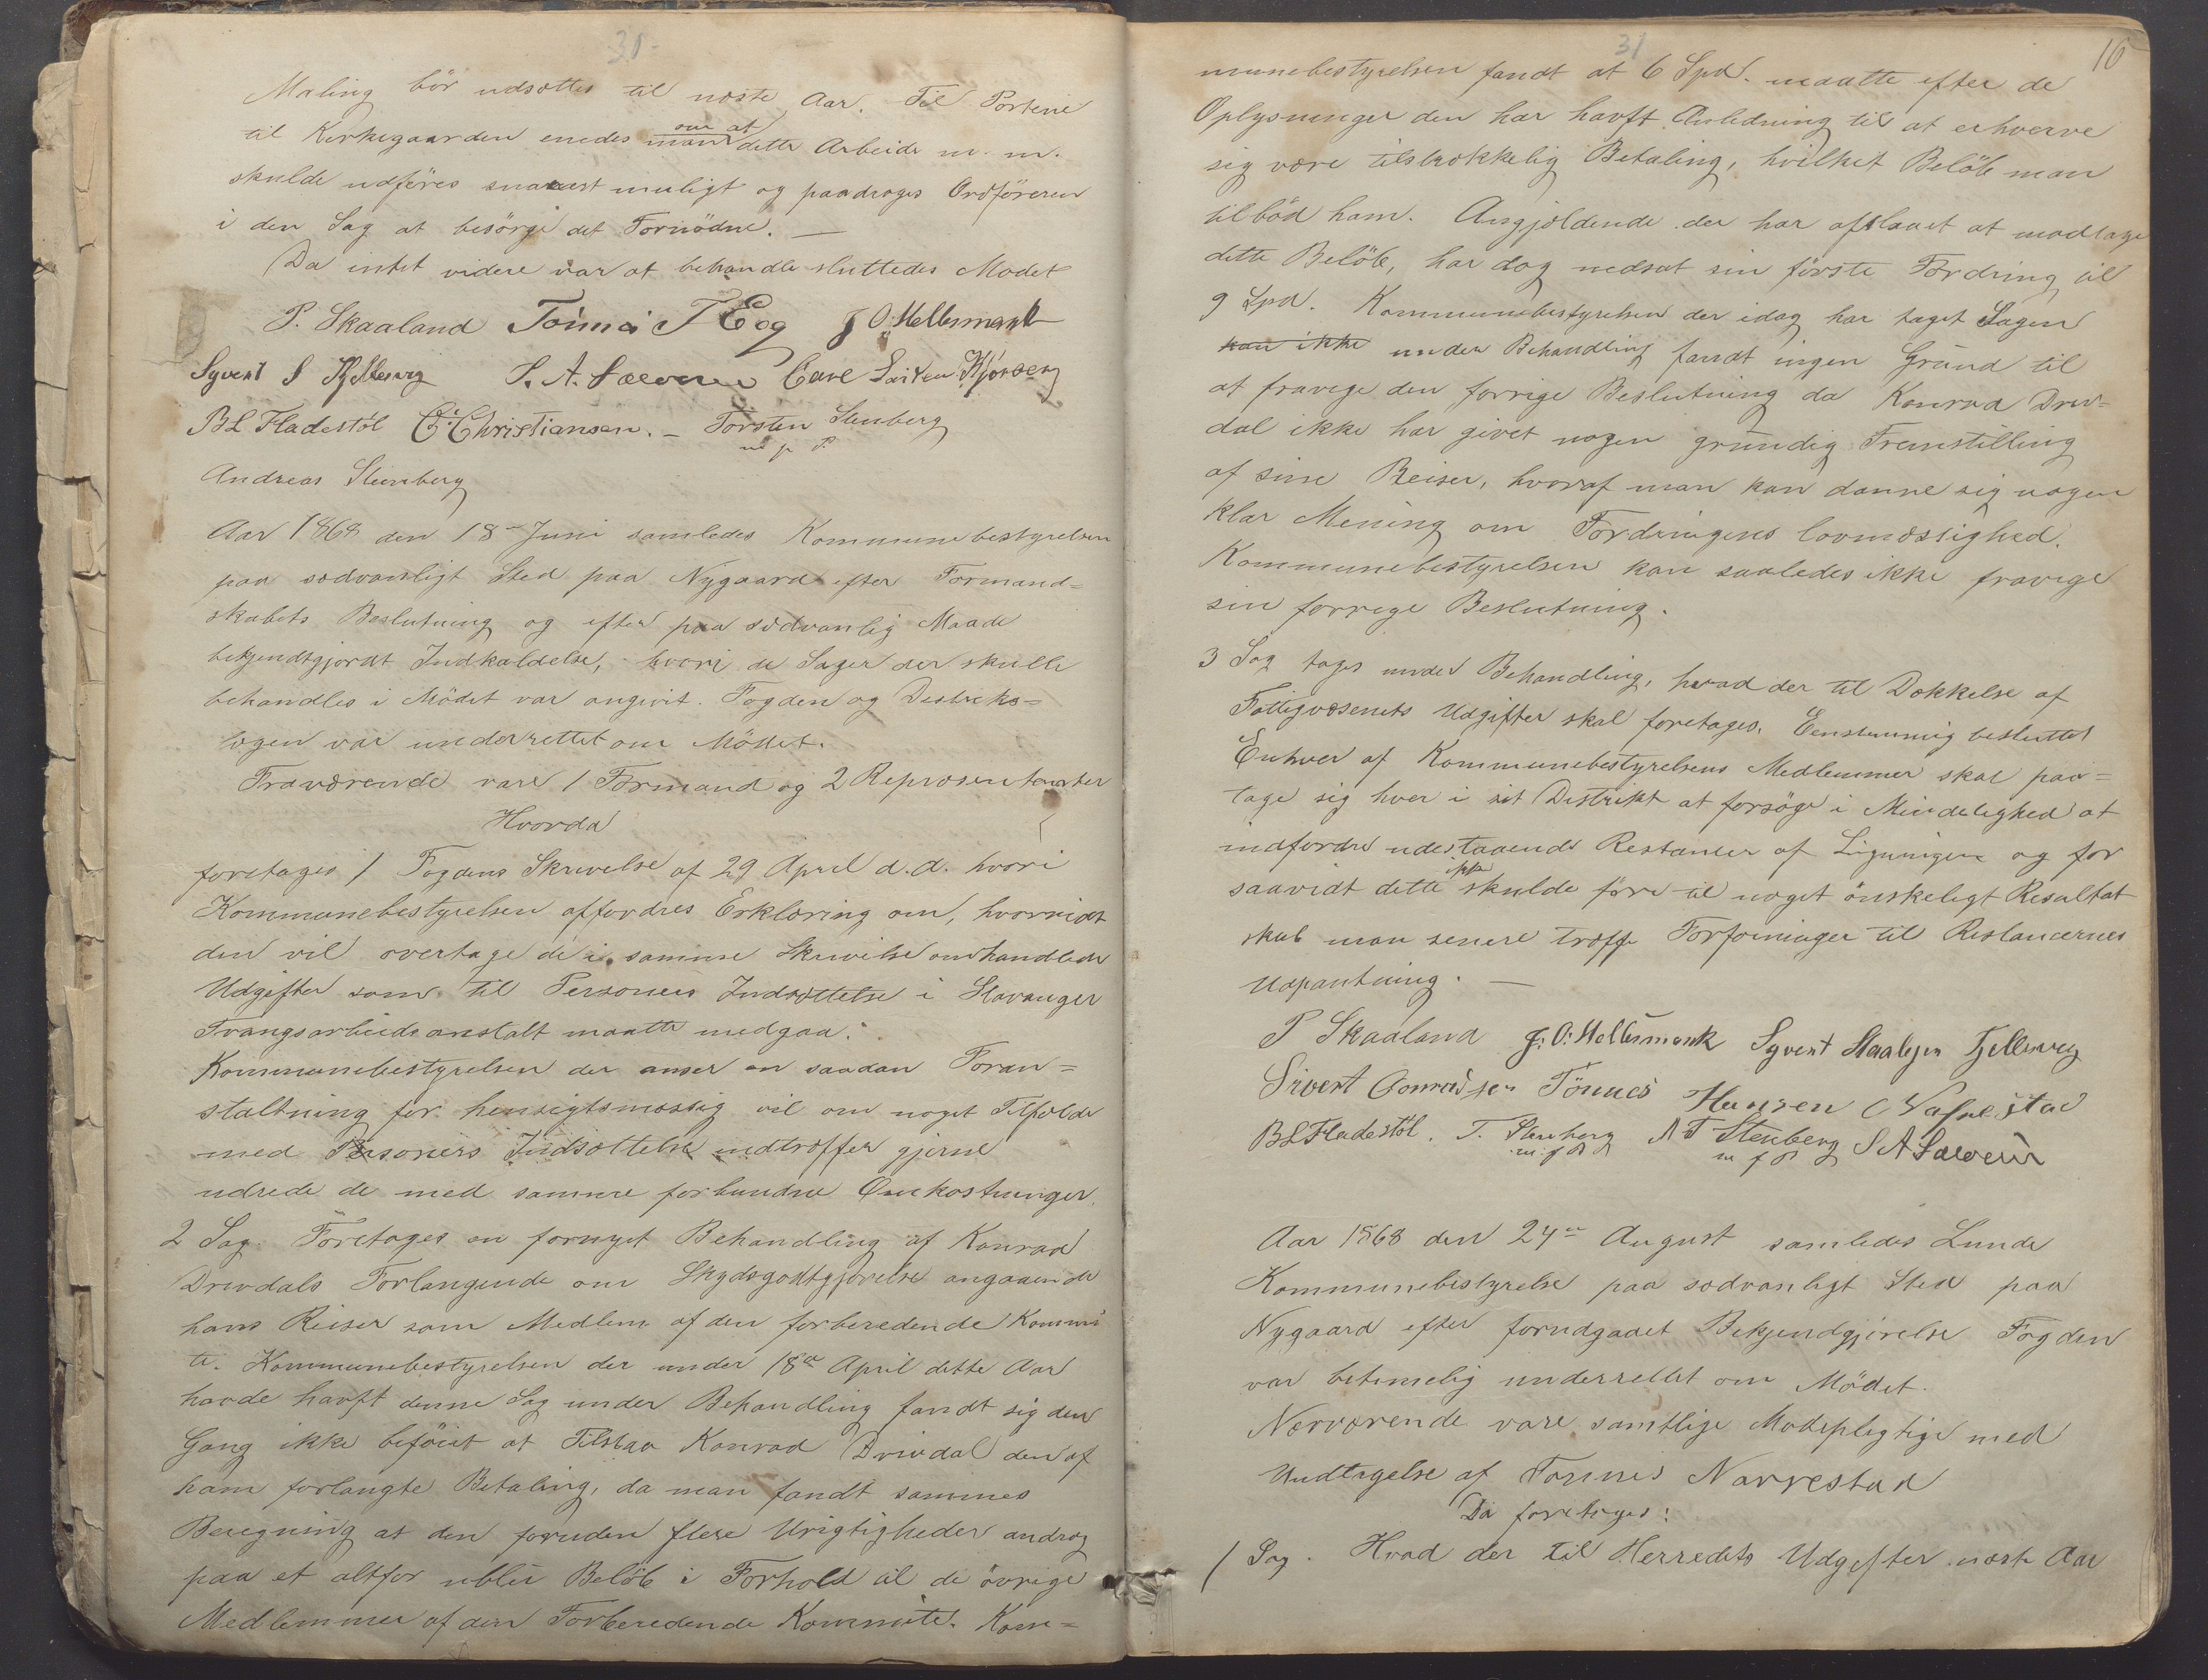 30.
Maling bör udsættes til næste Aar. Til Portene
til Kirkegaarden enedes man om at dette Arbeide m. m.
skulde udføres snarest muligt og paadroges Ordføreren
i den Sag at besörge det Fornödne. —
Da intet videre var at behandle sluttedes Mødet
P. Skaaland Tönnes T Eeg J O: Hellesmark
Syvert S Tjellesvig S. A. Salvesen Carl Larsen Kjörsen
B L Fladestöl C: Christiansen. – Torsten Stenberg
m f P
Andreas Stenberg
Aar 1868 den 18de Juni samledes Kommunebestyrelsen
paa sædvanligt Sted paa Nygaard efter Formand=
skabets Beslutning og efter paa sædvanlig Maade
bekjendtgjordt Indkaldelse, hvori de Sager der skulle
behandles i Mödet var angivet. Fogden og Distrikts=
lægen var underrettet om Mödet.
Fraværende vare 1 Formand og 2 Repræsentanter
Hvorda
foretages 1 Fogdens Skrivelse af 29 April d. A. hvori
Kommunebestyrelsen affordres Erklæring om, hvorvidt
den vil overtage de i samme Skrivelse omhandlede
Udgifter som til Personers Indsættelse i Stavanger
Tvangsarbeidsanstalt maatte medgaa.
Kommunebestyrelsen der anser en saadan Foran=
staltning for hensigtsmæssig vil om noget Tilfælde
med Personers Indsættelse indtræffer gjerne
udrede de med samme forbundne Omkostninger.
2 Sag. Foretages en fornyet Behandling af Konrad
Drivdals Forlangende om Skydsgodtgjörelse angaaende
hans Reiser som Medlem af den forberedende Kommi
te. Kommunebestyrelsen der under 18de April dette Aar
havde havft denne Sag under Behandling fandt sig den
Gang ikke beföiet at Tilstaa Konrad Drivdal den af
ham forlangte Betaling, da man fandt sammes
Beregning at den foruden flere Urigtigheder androg
paa et altfor Beløb i Forhold til de övrige
Medlemmer af den Forberedende Kommite. Kom=
31
16
munebestyrelsen fandt at 6 Spd. maatte efter de
Oplysninger den har havft Anledning til at erhverve
sig være tilstrækkelig Betaling, hvilket Belöb man
tilböd ham. Angjeldende der har afslaaet at modtage
dette Belöb, har dog nedsat sin förste Fordring til
9 Spd. Kommunebestyrelsen der idag har taget Sagen
kan ikke under Behandling fandt ingen Grund til
at fravige den forrige Beslutning da Konrad Driv=
dal ikke har givet nogen grundig Fremstilling
af sine Reiser, hvoraf man kan danne sig nogen
klar Mening om Fordringens lovmæssighed.
Kommunebestyrelsen kan saaledes ikke fravige
sin forrige Beslutning.
3 Sag tages under Behandling, hvad der til Dækkelse af
Fattigvæsenets Udgifter skal foretages. Eenstemmig besluttet
Enhver af Kommunebestyrelsens Medlemmer skal paa=
tage sig hver i sit Distrikt at forsöge i Mindelighed at
indfordre udestaaende Restancer af Ligningen og for
saavidt dette ikke skulde före til noget önskeligt Resultat
skal man senere træffe Forføininger til Restancernes
Udpantning. —
P Skaaland J: O: Hellesmark Syvert Staalesen Tjellesvig
Sivert Conradsen Tönnes Hansen Nafrestad
B L Fladestöl. T. Stenberg A T Stenberg S A Salvesen
m f P m f P
Aar 1868 den 24de August samledes Lunde
Kommunebestyrelse paa sædvanligt Sted paa
Nygaard efter forudgaaet Bekjendgjörelse Fogden
var betimelig underrettet om Mödet.
Nærværende vare samtlige Mødepligtige med
Undtagelse af Tönnes Navrestad
Da foretages:
1 Sag. Hvad der til Herredets Udgifter næste Aar